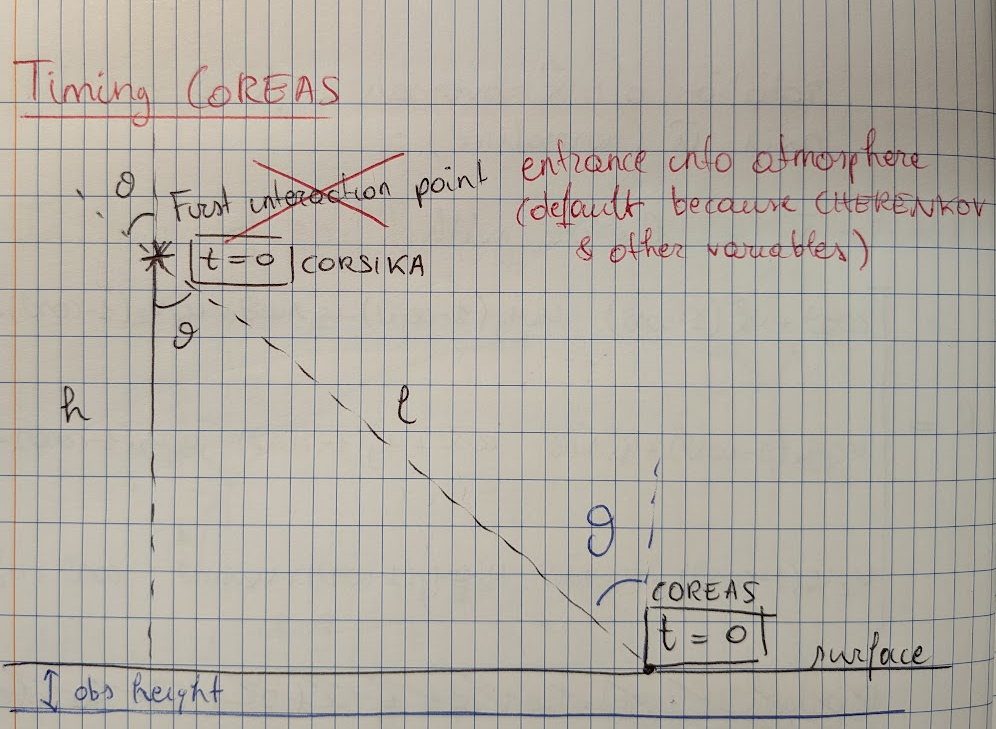 Timing COREAS
θ First interaction point entrance into atmosphere
(default because CHERENKOV
& other variables)
t = 0 CORSIKA
θ
h
l
θ
COREAS
t = 0
surface
obs height